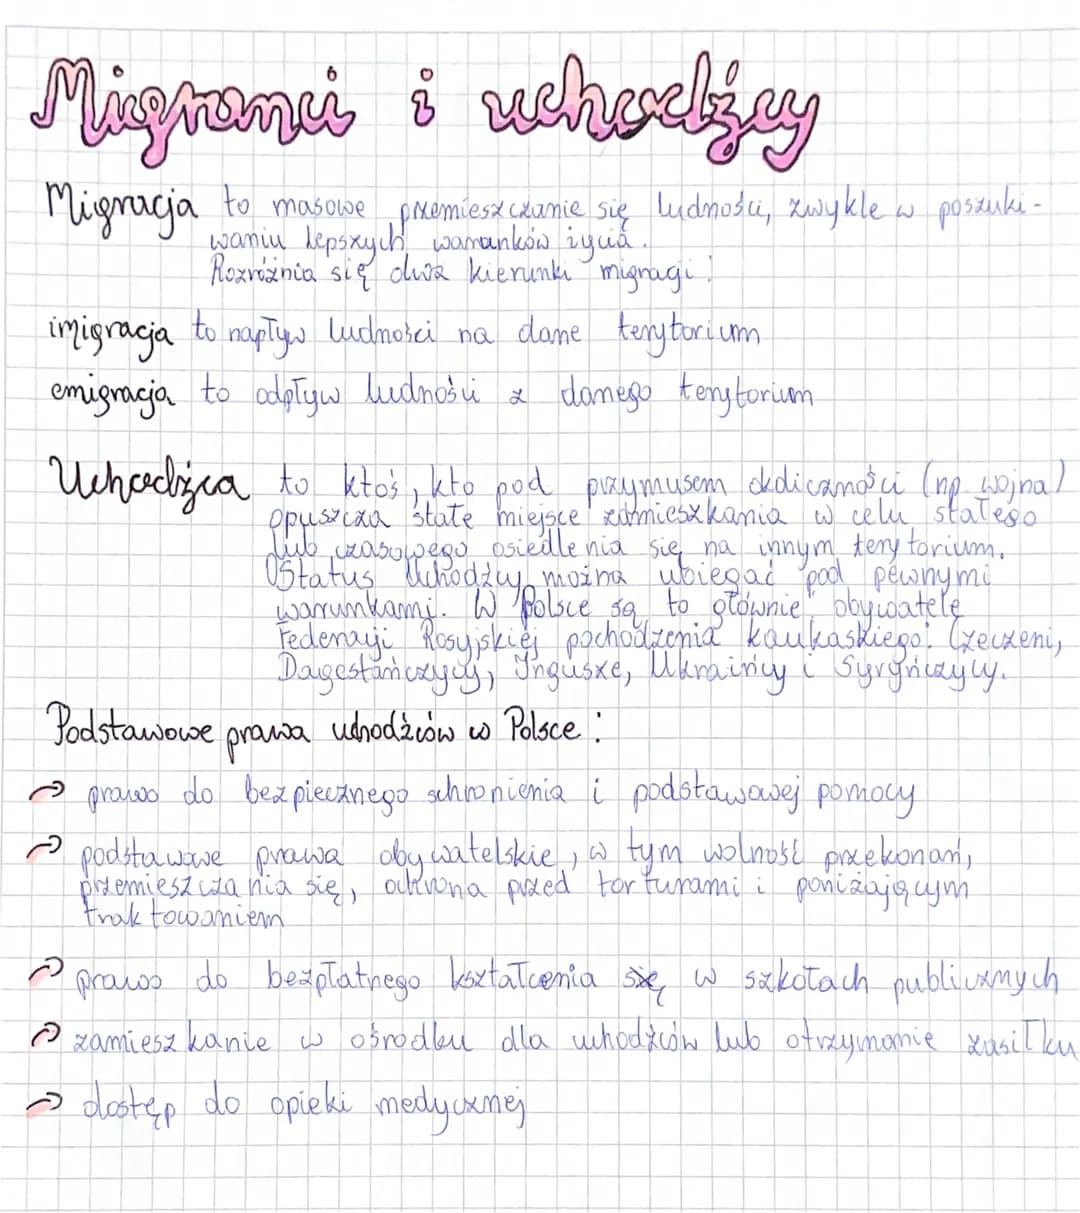 Migranci i uchodźcy
Migracja to masowe przemieszczanie się ludności, zwykle w poszuki-
waniu lepszych warunków życia.
Rozróżnia się dwa kierunki migracji:
imigracja to napływ ludności na dane terytorium
emigracja to odpływ ludności z danego terytorium
Uchodźca to ktoś, kto pod przymusem okoliczności (np. wojna)
opuszcza stałe miejsce zamieszkania w celu stałego
lub czasowego osiedlenia się na innym terytorium.
Status uchodźcy można ubiegać pod pewnymi
warunkami. W Polsce są to głównie obywatele
Federacji Rosyjskiej pochodzenia kaukaskiego: Czeczeni,
Dagestańczycy, Ingusze, Ukraińcy i Syryjczycy.
Podstawowe prawa uchodźców w Polsce:
prawo do bezpiecznego schronienia i podstawowej pomocy
podstawowe prawa obywatelskie, w tym wolność przekonań,
przemieszczania się, ochrona przed torturami i poniżającym
traktowaniem
prawo do bezpłatnego kształcenia się w szkołach publicznych
zamieszkanie w ośrodku dla uchodźców lub otrzymanie zasiłku
dostęp do opieki medycznej